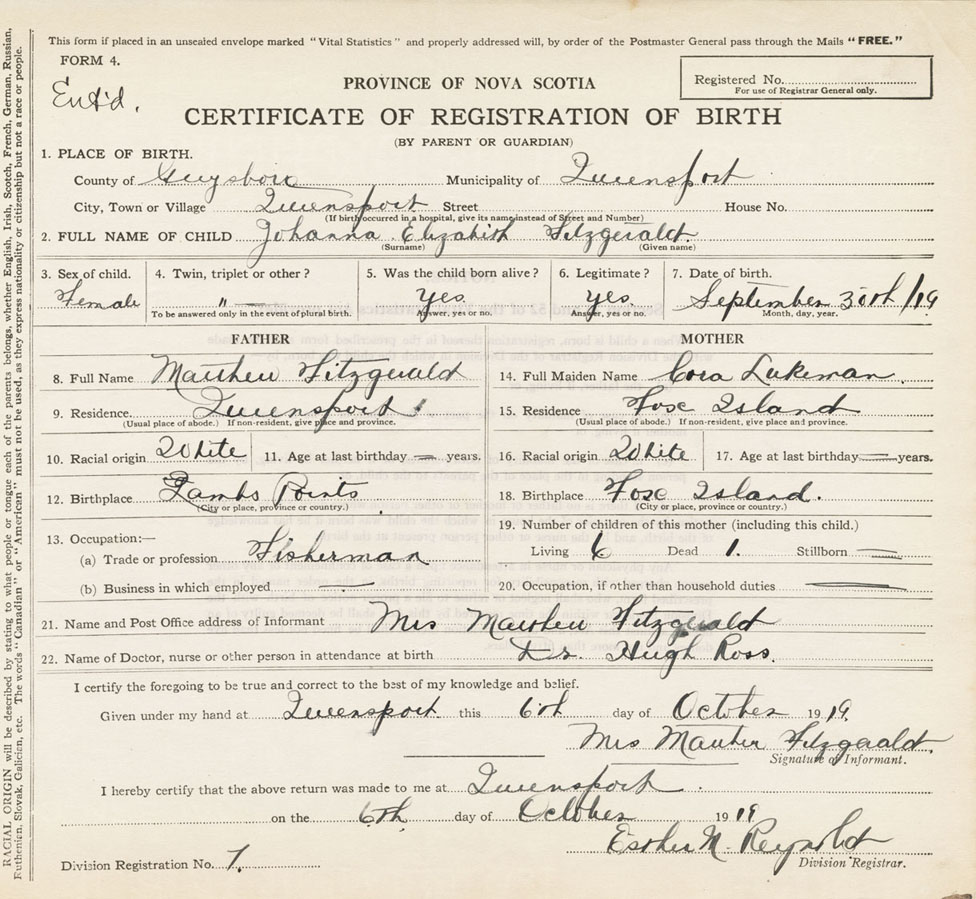 This form if placed in an unsealed envelope marked "Vital Statistics" and properly addressed will, by order of the Postmaster General pass through the Mails "FREE."
FORM 4.
Ent'd.
Registered No.
For use of Registrar General only.
PROVINCE OF NOVA SCOTIA
CERTIFICATE OF REGISTRATION OF BIRTH
(BY PARENT OR GUARDIAN)
1. PLACE OF BIRTH.
County of Guysboro Municipality of Queensport
City, Town or Village Queensport Street House No.
(If birth occurred in a hospital, give its name instead of Street and Number)
2. FULL NAME OF CHILD Johanna Elizabeth Fitzgerald.
(Surname) (Given name)
3. Sex of child. 4. Twin, triplet or other? 5. Was the child born alive? 6. Legitimate? 7. Date of birth.
Female " — Yes. Yes. September 30th /19
To be answered only in the event of plural birth. Answer, yes or no. Answer, yes or no. Month, day, year.
FATHER MOTHER
8. Full Name Matthew Fitzgerald 14. Full Maiden Name Cora Lukeman.
9. Residence. Queensport 15. Residence Fox Island
(Usual place of abode.) If non-resident, give place and province. (Usual place of abode.) If non-resident, give place and province.
10. Racial origin White 11. Age at last birthday — years. 16. Racial origin White 17. Age at last birthday — years.
12. Birthplace Points 18. Birthplace Fox Island.
(City or place, province or country.) (City or place, province or country.)
13. Occupation:— 19. Number of children of this mother (including this child.)
(a) Trade or profession Fisherman Living 6 Dead 1. Stillborn —
(b) Business in which employed — 20. Occupation, if other than household duties —
21. Name and Post Office address of Informant Mrs Matthew Fitzgerald
22. Name of Doctor, nurse or other person in attendance at birth Dr. Hugh Ross.
I certify the foregoing to be true and correct to the best of my knowledge and belief.
Given under my hand at Queensport this 6th day of October 1919.
Mrs Matthew Fitzgerald.
Signature of Informant.
I hereby certify that the above return was made to me at Queensport.
on the 6th day of October 1919
Esther M. Reynolds
Division Registrar.
Division Registration No. 7.
RACIAL ORIGIN will be described by stating to what people or tongue each of the parents belongs, whether English, Irish, Scotch, French, German, Russian,
Ruthenian, Slovak, Galician, etc. The words "Canadian" or "American" must not be used, as they express nationality or citizenship but not a race or people.